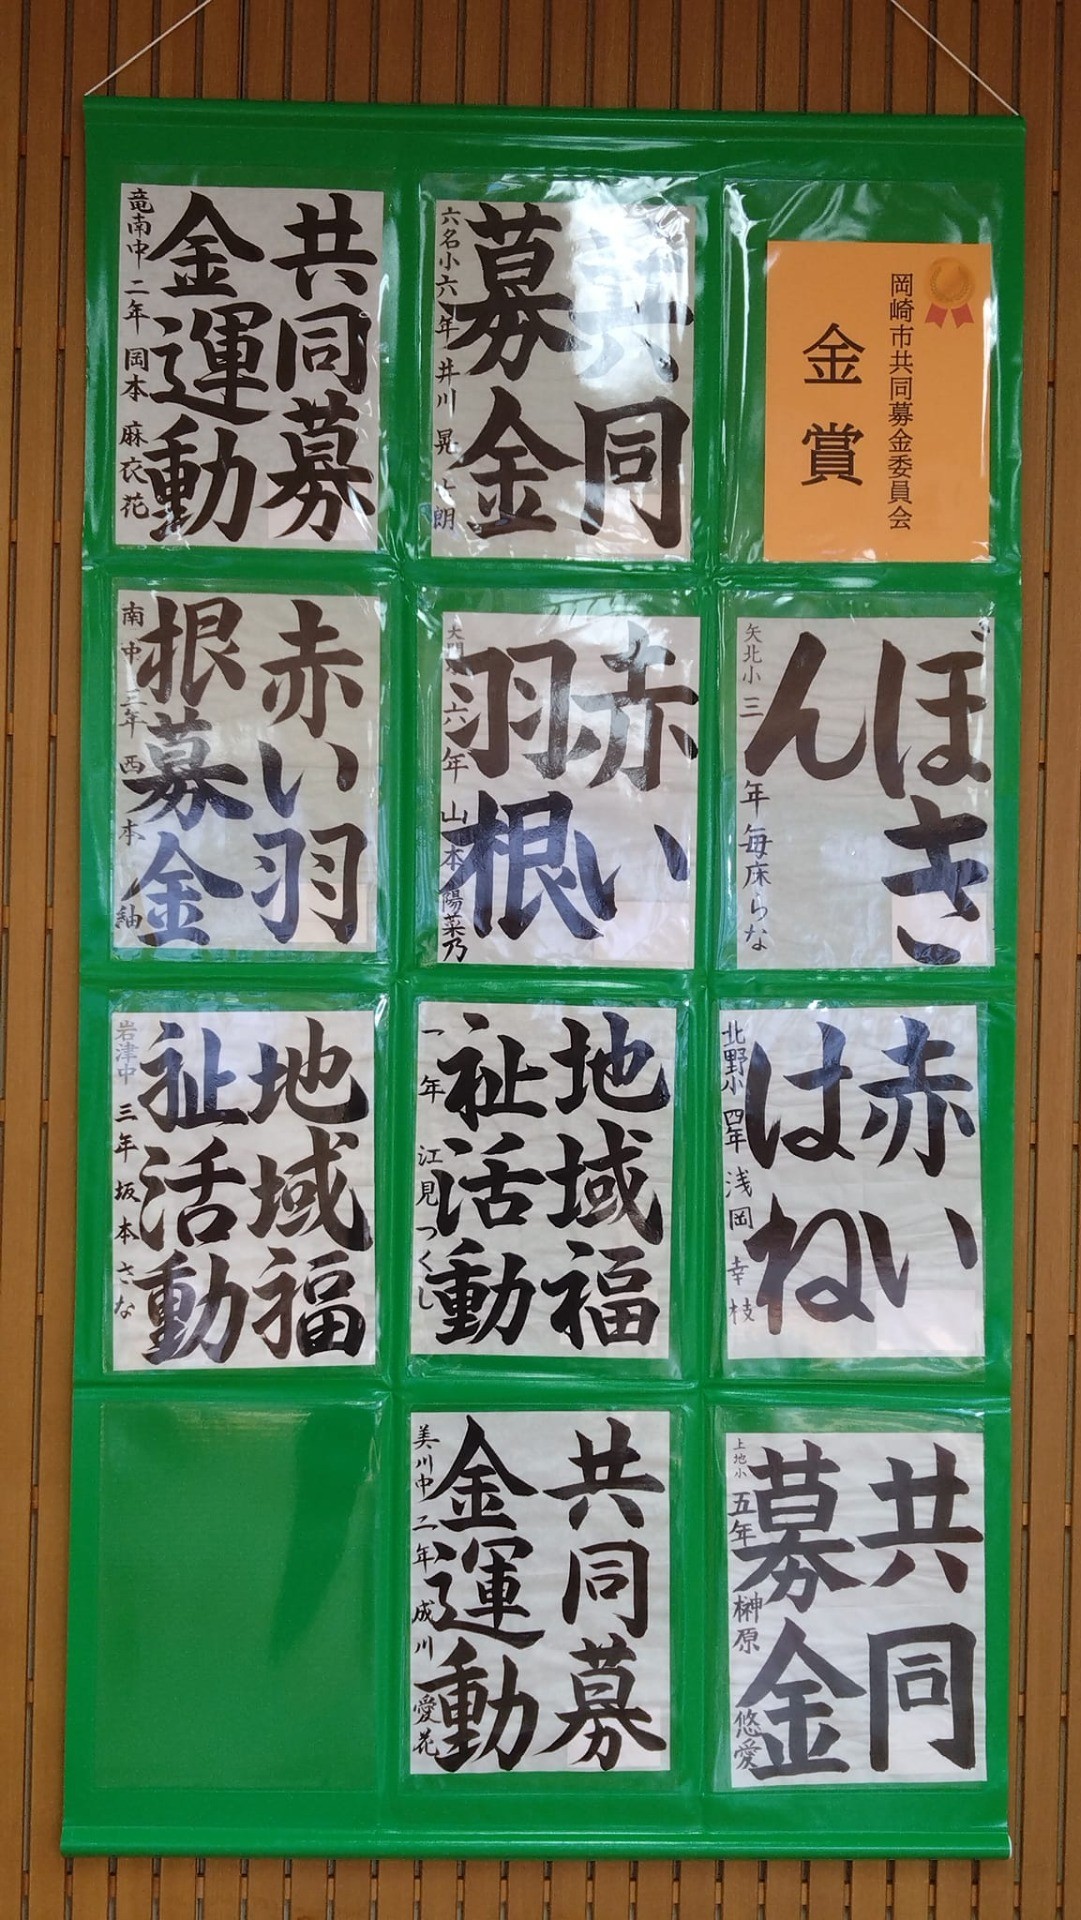 岡崎市共同募金委員会
金賞
ぼき
ん
矢北小 三年 毎床らな
赤い
はね
北野小 四年 浅岡 幸枝
共同
募金
上地小 五年 榊原 悠愛
共同
募金
六名小 六年 井川 晃
朗
赤い
羽根
六年 山本 陽菜乃
地域福
祉活動
一年 江見つくし
共同募
金運動
美川中 二年 成川 愛花
共同募
金運動
竜南中 二年 岡本 麻衣花
赤い羽
根募金
南中 三年 西本 紬
地域福
祉活動
岩津中 三年 坂本 さな